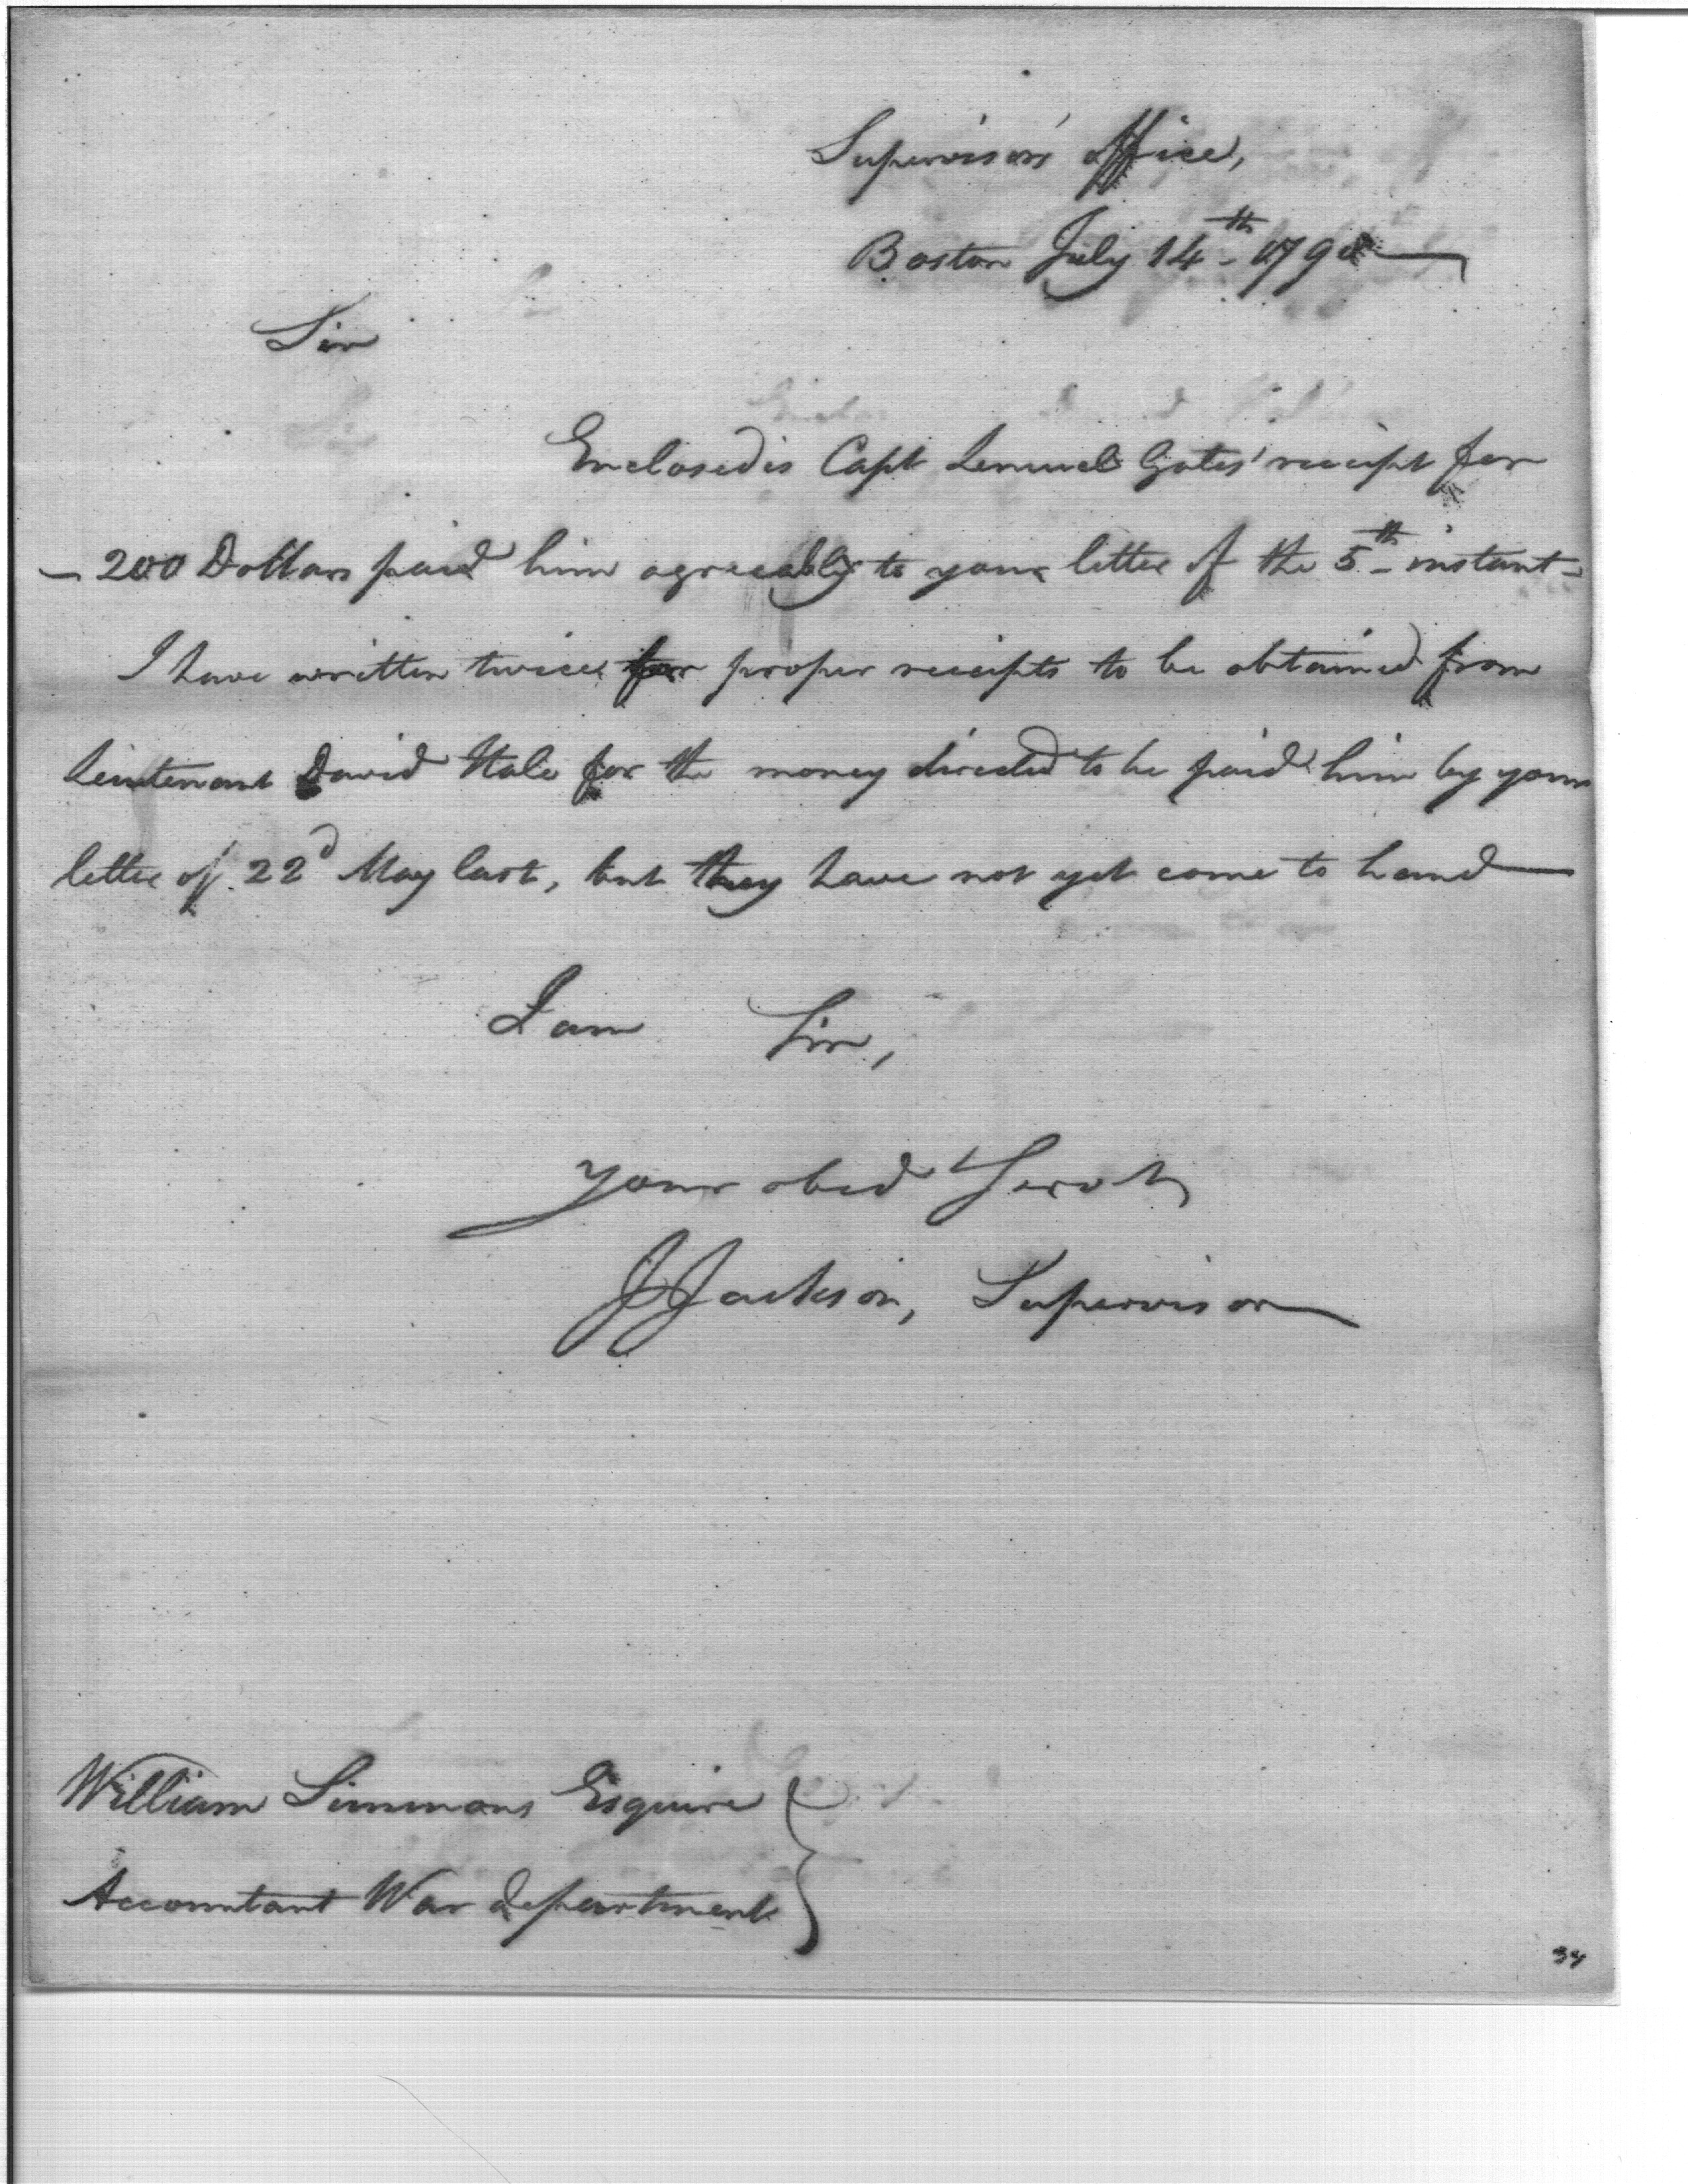 Supervisors' Office,
Boston July 14th 1798
Sir
Enclosed is Capt Lemuel Gates' receipt for
200 Dollars paid him agreeably to your letter of the 5th instant
I have written twice for proper receipts to be obtained from
Lieutenant David Hale for the money directed to be paid him by your
letter of 22d May last, but they have not yet come to hand
I am Sir,
your obed Servt
J Jackson, Supervisor
William Simmons Esquire
Accountant War department
34